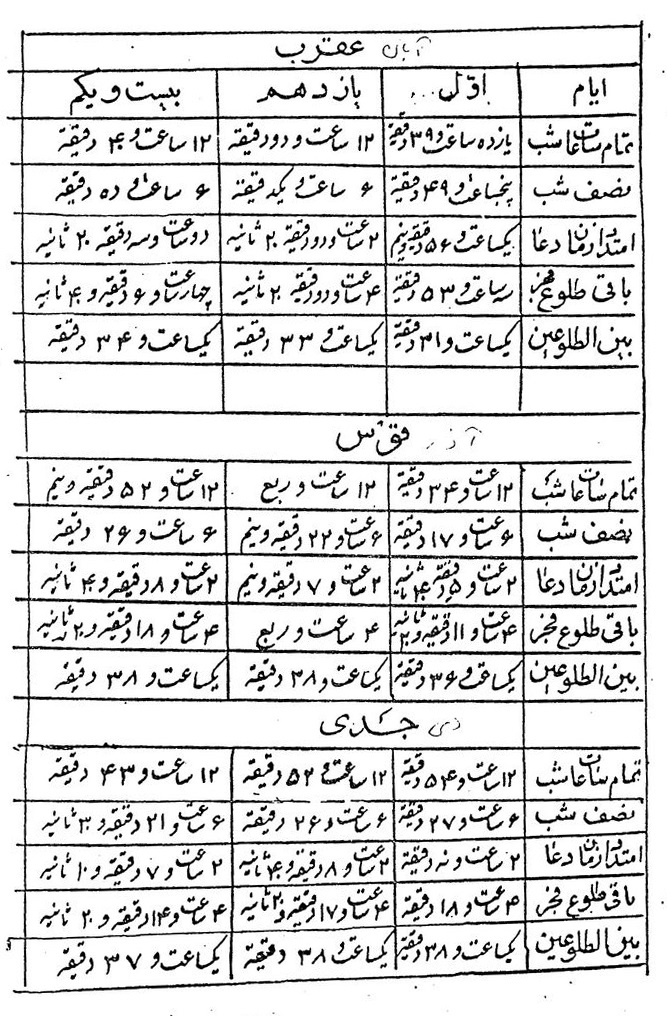 آبان عقرب
ایام اوّل یازدهم بیست و یکم
تمام ساعات شب یازده ساعت و ۳۹ دقیقه ۱۲ ساعت و دو دقیقه ۱۲ ساعت و ۴ دقیقه
نصف شب پنجساعت و ۴۹ دقیقه ۶ ساعت و یکدقیقه ۶ ساعت و ده دقیقه
امتداد زمان دعا یکساعت و ۵۶ دقیقه و نیم ۲ ساعت و دو دقیقه ۲۰ ثانیه دو ساعت و سه دقیقه ۲۰ ثانیه
باقی طلوع فجر سه ساعت و ۵۳ دقیقه ۴ ساعت و دو دقیقه ۲۰ ثانیه چهار ساعت و ۶ دقیقه و ۴۰ ثانیه
بین الطلوعین یکساعت و ۳۱ دقیقه یکساعت و ۳۳ دقیقه یکساعت و ۳۴ دقیقه
آذر قوس
تمام ساعات شب ۱۲ ساعت و ۳۴ دقیقه ۱۲ ساعت و ربع ۱۲ ساعت و ۵۲ دقیقه و نیم
نصف شب ۶ ساعت و ۱۷ دقیقه ۶ ساعت و ۲۲ دقیقه و نیم ۶ ساعت و ۲۶ دقیقه
امتداد زمان دعا ۲ ساعت و ۵ دقیقه ۴۰ ثانیه ۲ ساعت و ۷ دقیقه و نیم ۲ ساعت و ۸ دقیقه و ۴۰ ثانیه
باقی طلوع فجر ۴ ساعت و ۱۱ دقیقه و ۲۰ ثانیه ۴ ساعت و ربع ۴ ساعت و ۱۸ دقیقه و ۲۰ ثانیه
بین الطلوعین یکساعت و ۳۶ دقیقه یکساعت و ۳۸ دقیقه یکساعت و ۳۸ دقیقه
دی جدی
تمام ساعات شب ۱۲ ساعت و ۵۴ دقیقه ۱۲ ساعت و ۵۲ دقیقه ۱۲ ساعت و ۴۳ دقیقه
نصف شب ۶ ساعت و ۲۷ دقیقه ۶ ساعت و ۲۶ دقیقه ۶ ساعت و ۲۱ دقیقه و ۳۰ ثانیه
امتداد زمان دعا ۲ ساعت و نه دقیقه ۲ ساعت و ۸ دقیقه و ۴۰ ثانیه ۲ ساعت و ۷ دقیقه و ۱۰ ثانیه
باقی طلوع فجر ۴ ساعت و ۱۸ دقیقه ۴ ساعت و ۱۷ دقیقه و ۲۰ ثانیه ۴ ساعت و ۱۴ دقیقه و ۲۰ ثانیه
بین الطلوعین یکساعت و ۳۸ دقیقه یکساعت و ۳۸ دقیقه یکساعت و ۳۷ دقیقه